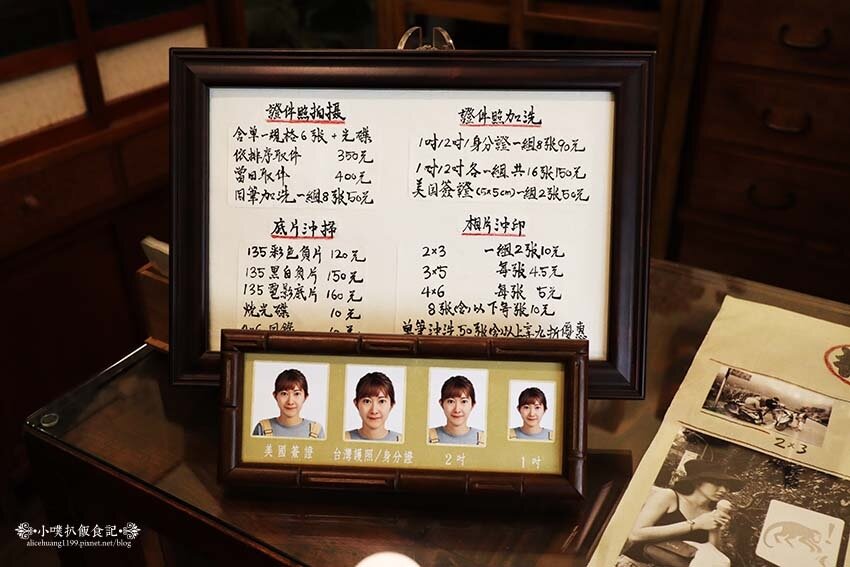 證件照拍攝
含單一規格6張+光碟
依排序取件 350元
當日取件 400元
同筆加洗一組8張50元
證件照加洗
1吋/2吋/身分證一組8張90元
1吋/2吋各一組共16張150元
美國簽證(5x5cm)一組2張50元
底片沖掃
135彩色負片 120元
135黑白負片 150元
135電影底片 160元
燒光碟 10元
相片沖印
2×3 一組2張10元
3×5 每張4.5元
4×6 每張 5元
8張(含)以下每張10元
單筆沖洗50張(含)以上享九折優惠
美國簽證
台灣護照/身分證
2吋
1吋
2×3
小噗扒飯食記
alicehuang1199.pixnet.net/blog